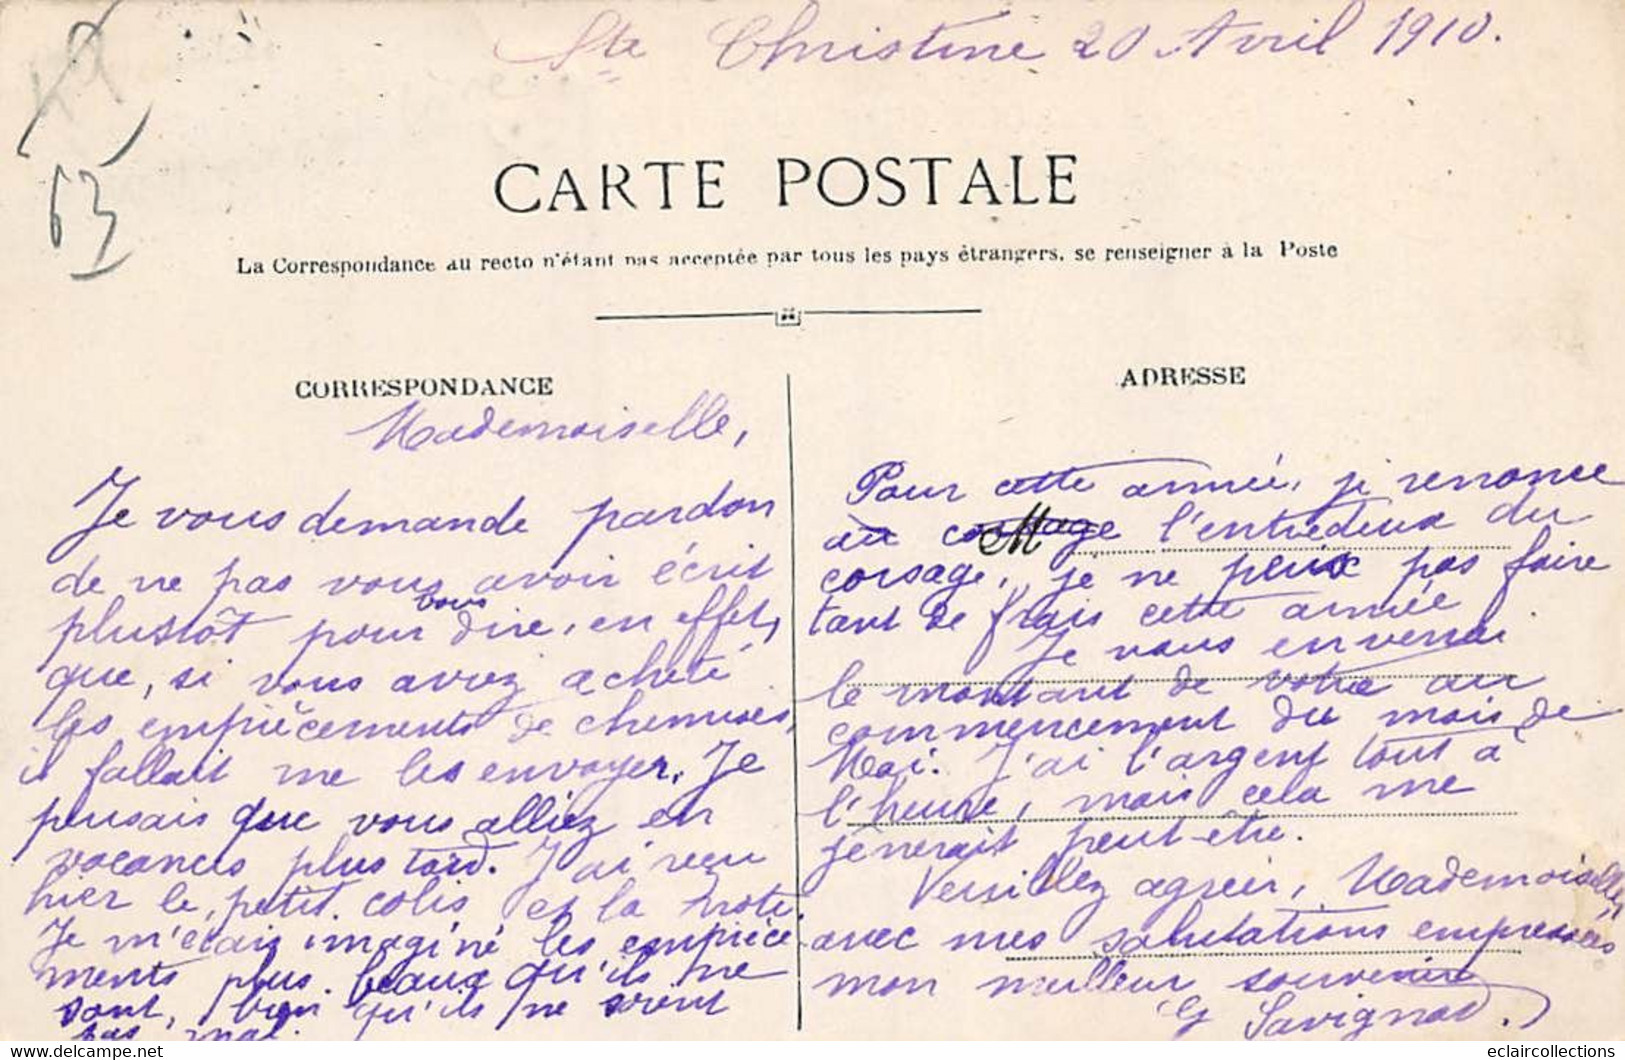 Ste Christine 20 Avril 1910.
63
CARTE POSTALE
La Correspondance au recto n'étant pas acceptée par tous les pays étrangers, se renseigner à la Poste
CORRESPONDANCE
Mademoiselle,
Je vous demande pardon
de ne pas vous avoir écrit
plustôt pour vous dire, en effet,
que, si vous aviez acheté
les empiècements de chemises,
il fallait me les envoyer. Je
pensais que vous alliez en
vacances plus tard. J'ai reçu
hier le petit colis et la note.
Je m'étais imaginé les empièce
ments plus beaux qu'ils ne
sont, bien qu'ils ne soient
pas mal.
ADRESSE
Pour cette année, je renonce
au corsage l'entredeux du
M
corsage, je ne peux pas faire
tant de frais cette année
Je vous enverrai
le montant de votre au
commencement du mois de
Mai. J'ai l'argent tout à
l'heure, mais cela me
gènerait peut-être.
Veuillez agréer, Mademoiselle,
avec mes salutations empressées
mon meilleur souvenir
G Savignat.
eclaircollections